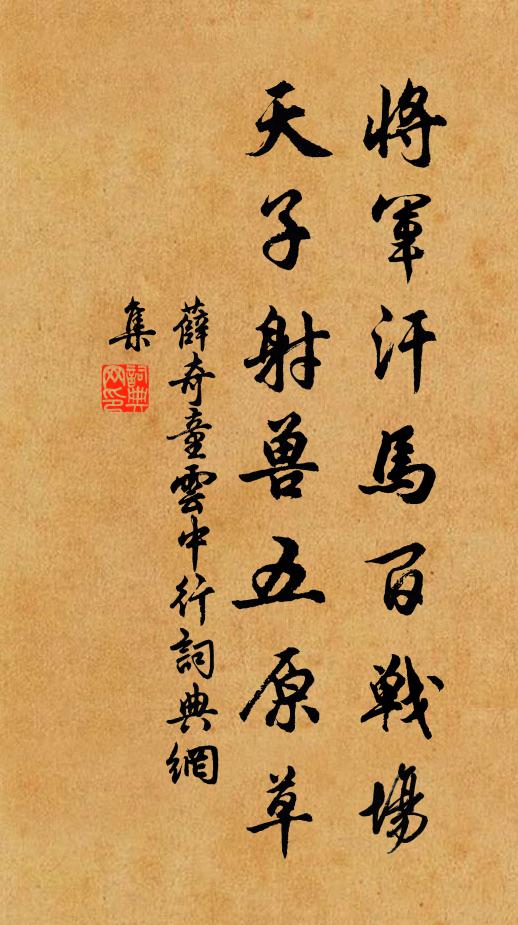 將軍汗馬百戰場
天子射兽五原草
薛奇童雲中行詞典網
集
詞典
网印